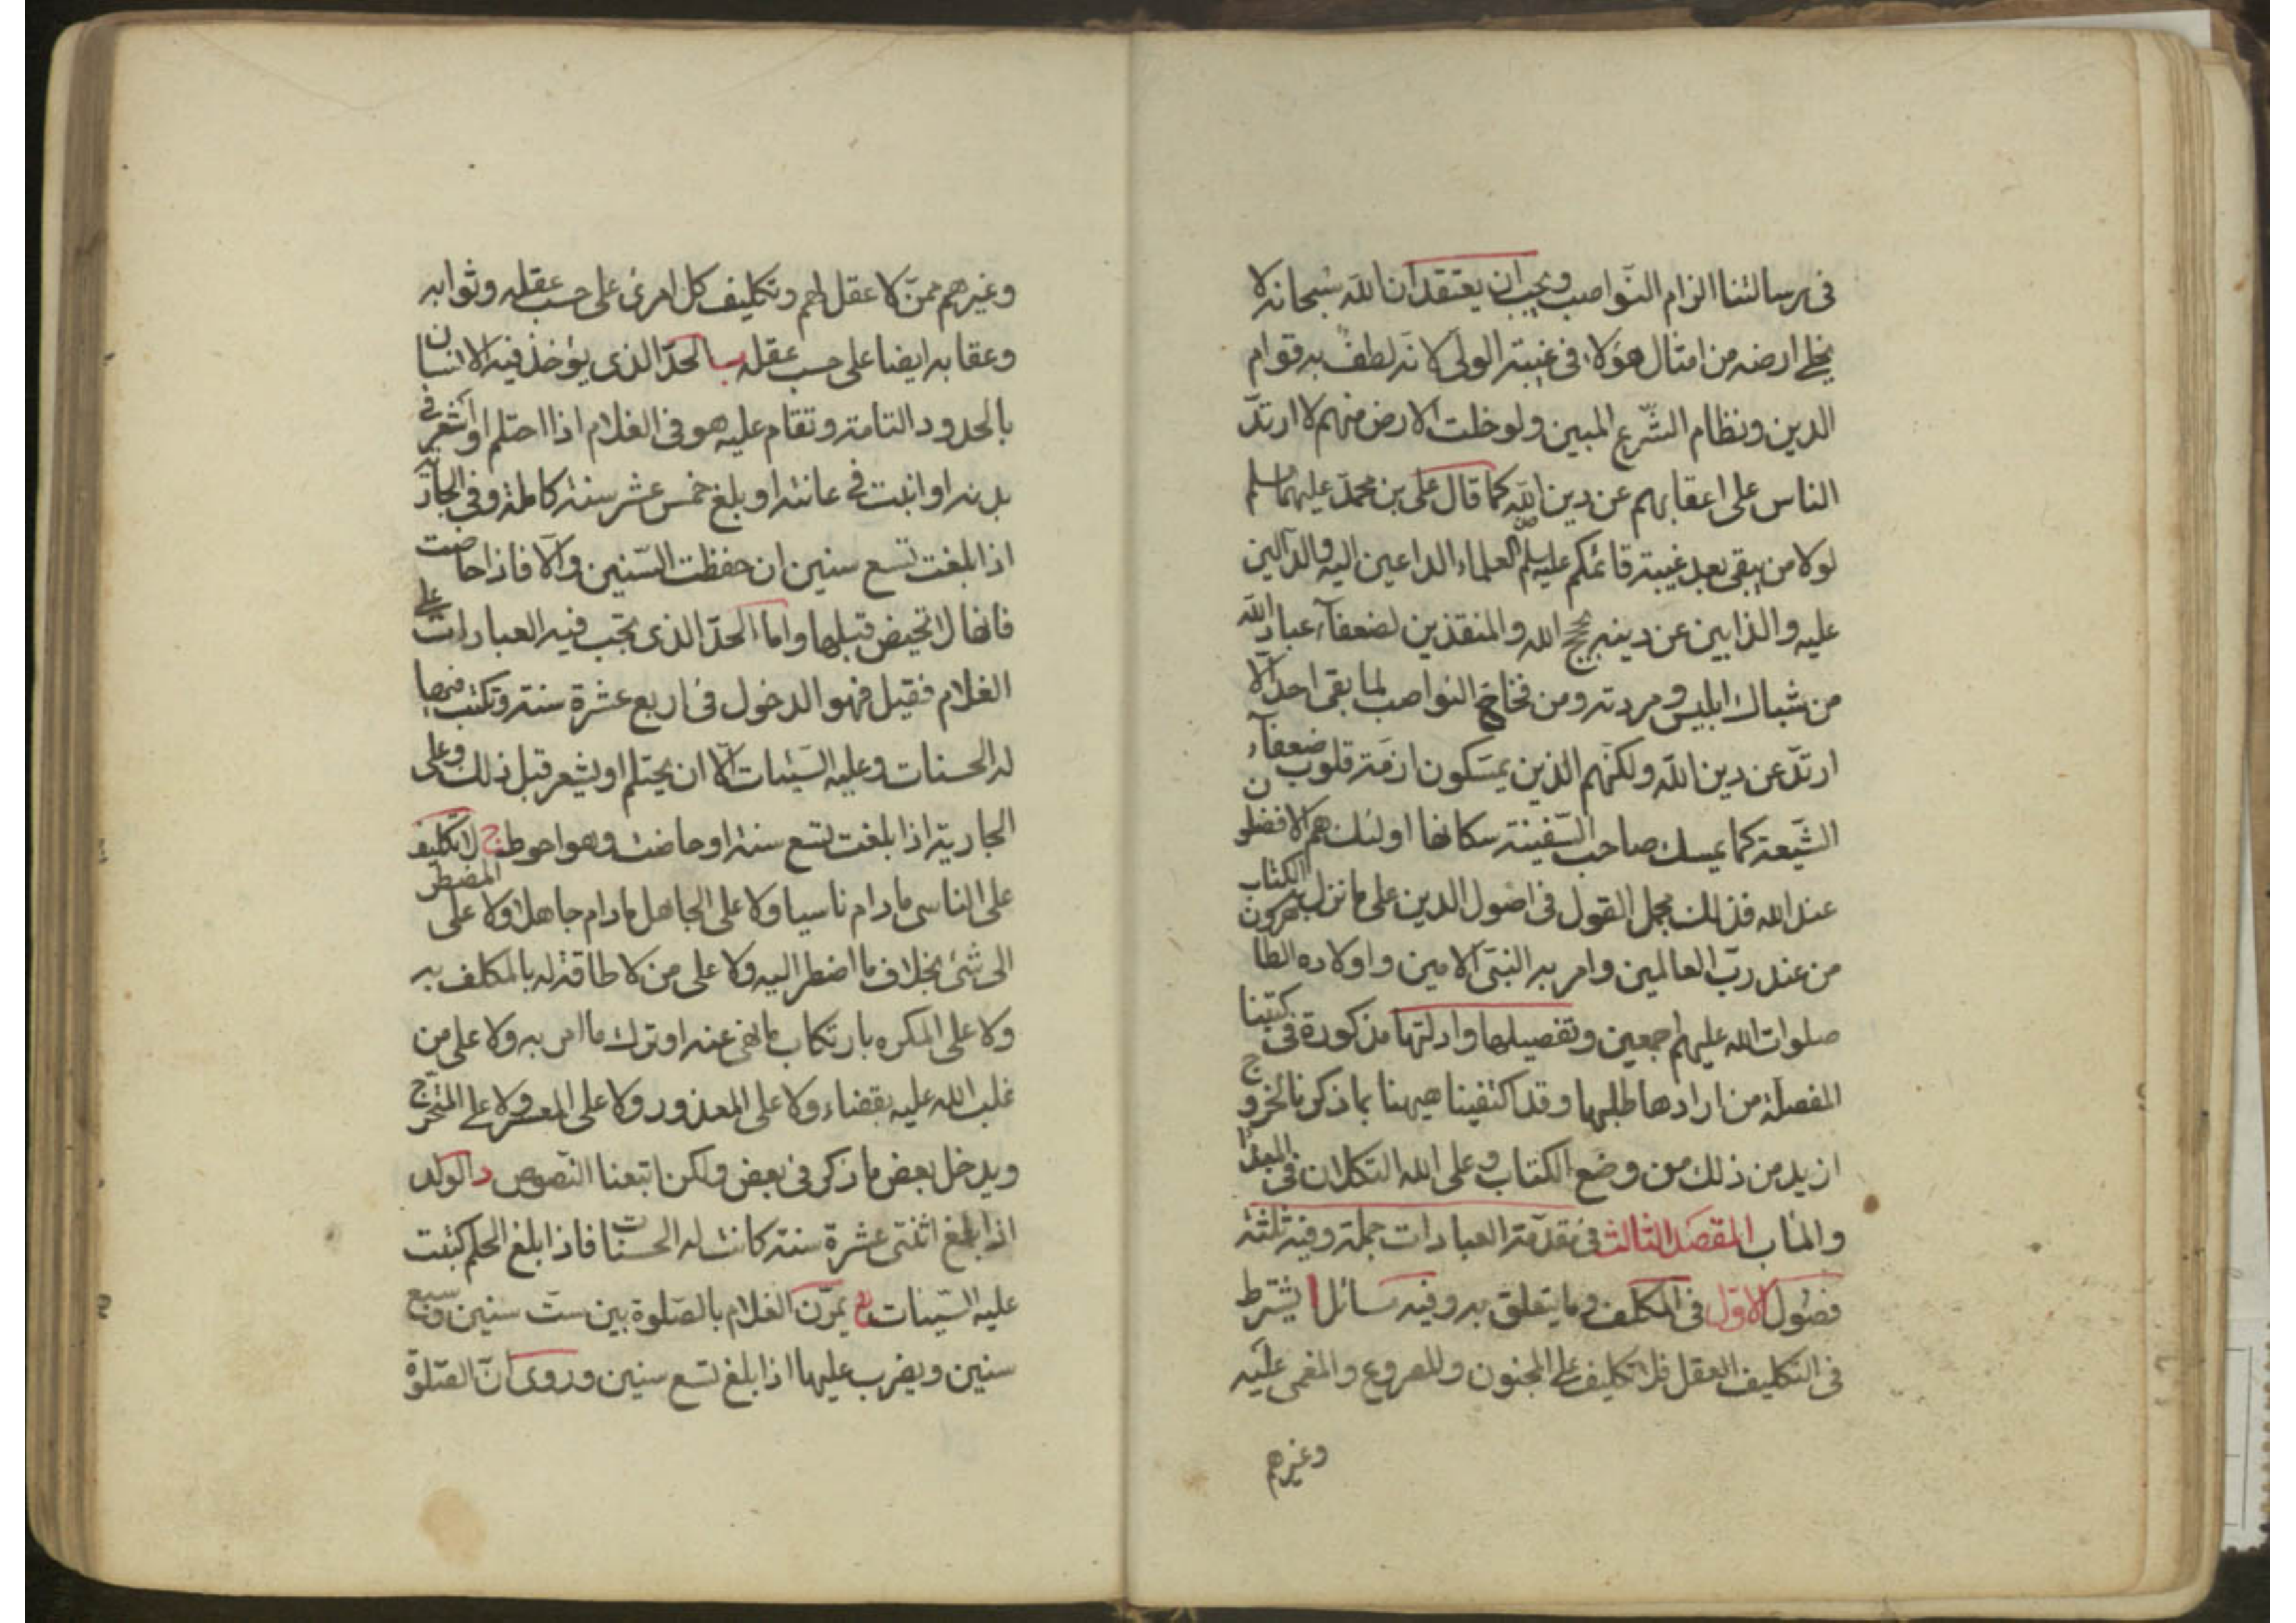 في رسالتنا الزام النواصب ويجب ان يعتقد ان الله سبحانه لا
يخلي ارضه من امثال هؤلاء في غيبته الولي لانه لطف به قوام
الدين ونظام الشرع المبين ولو خلت الارض منهم لا ارتدّ
الناس على اعقابهم عن دين الله كما قال علي بن محمد عليهما سلم
لولا من يبقى بعد غيبة قائمكم عليه سلم من العلماء الداعين اليه والدالين
عليه والذابين عن دينه بحجج الله والمنقذين لضعفآء عباد الله
من شباك ابليس ومردته ومن فخاخ النواصب لما بقى احد الا
ارتدّ عن دين الله ولكنهم الذين يمسكون ازمة قلوب ضعفآء
الشيعة كما يمسك صاحب السفينة سكانها اولئك هم الافضلون
عند الله فذلك مجمل القول في اصول الدين على ما نزل به الكتاب
من عند ربّ العالمين وامر به النبي الامين واولاده الطاهرون
صلوات الله عليهم اجمعين وتفصيلها وادلتها مذكورة في كتبنا
المفصلة من ارادها طلبها وقد اكتفينا هيهنا بما ذكرنا لخروج
ازيد من ذلك من وضع الكتاب وعلى الله التكلان في المبدا
والماب المقصد الثالث في مقدمة العبادات جملة وفيه ثلثة
فصول الاول في المكلف وما يتعلق به وفيه مسائل ا يشترط
في التكليف العقل فلا تكليف على المجنون والمصروع والمغمى عليه
وغيرهم
وغيرهم ممن لا عقل لهم وتكليف كل امرئ على حسب عقله وثوابه
وعقابه ايضا على حسب عقله ب الحدّ الذي يؤخذ فيه الانسان
بالحدود التامة وتقام عليه هو في الغلام اذا احتلم او اشعر في
بدنه او انبت في عانته او بلغ خمس عشر سنة كاملة وفي الجارية
اذا بلغت تسع سنين ان حفظت السنين والّا فاذا حاضت
فانها لا تحيض قبلها واما الحدّ الذي يجب فيه العبادات على
الغلام فقيل فهو الدخول في اربع عشرة سنة وتكتب فيها
له الحسنات وعليه السيئات الّا ان يحتلم او يشعر قبل ذلك وعلى
الجارية اذا بلغت تسع سنة او حاضت وهو احوط ج لا تكليف
على الناسي ما دام ناسيا ولا على الجاهل ما دام جاهلا ولا على المضطر
الى شئ بخلاف ما اضطر اليه ولا على من لا طاقة له بالمكلف به
ولا على المكره بارتكاب ما نهى عنه او ترك ما امر به ولا على من
غلب الله عليه بقضاء ولا على المعذور ولا على المعسر ولا على المتحرج
ويدخل بعض ما ذكر في بعض ولكن اتبعنا النصوص د الولد
اذا بلغ اثنتى عشرة سنة كانت له الحسنات فاذا بلغ الحلم كتبت
عليه السيئات ه يمرّن الغلام بالصلوة بين ستّ سنين وسبع
سنين ويضرب عليها اذا بلغ تسع سنين وروى انّ الصلوة